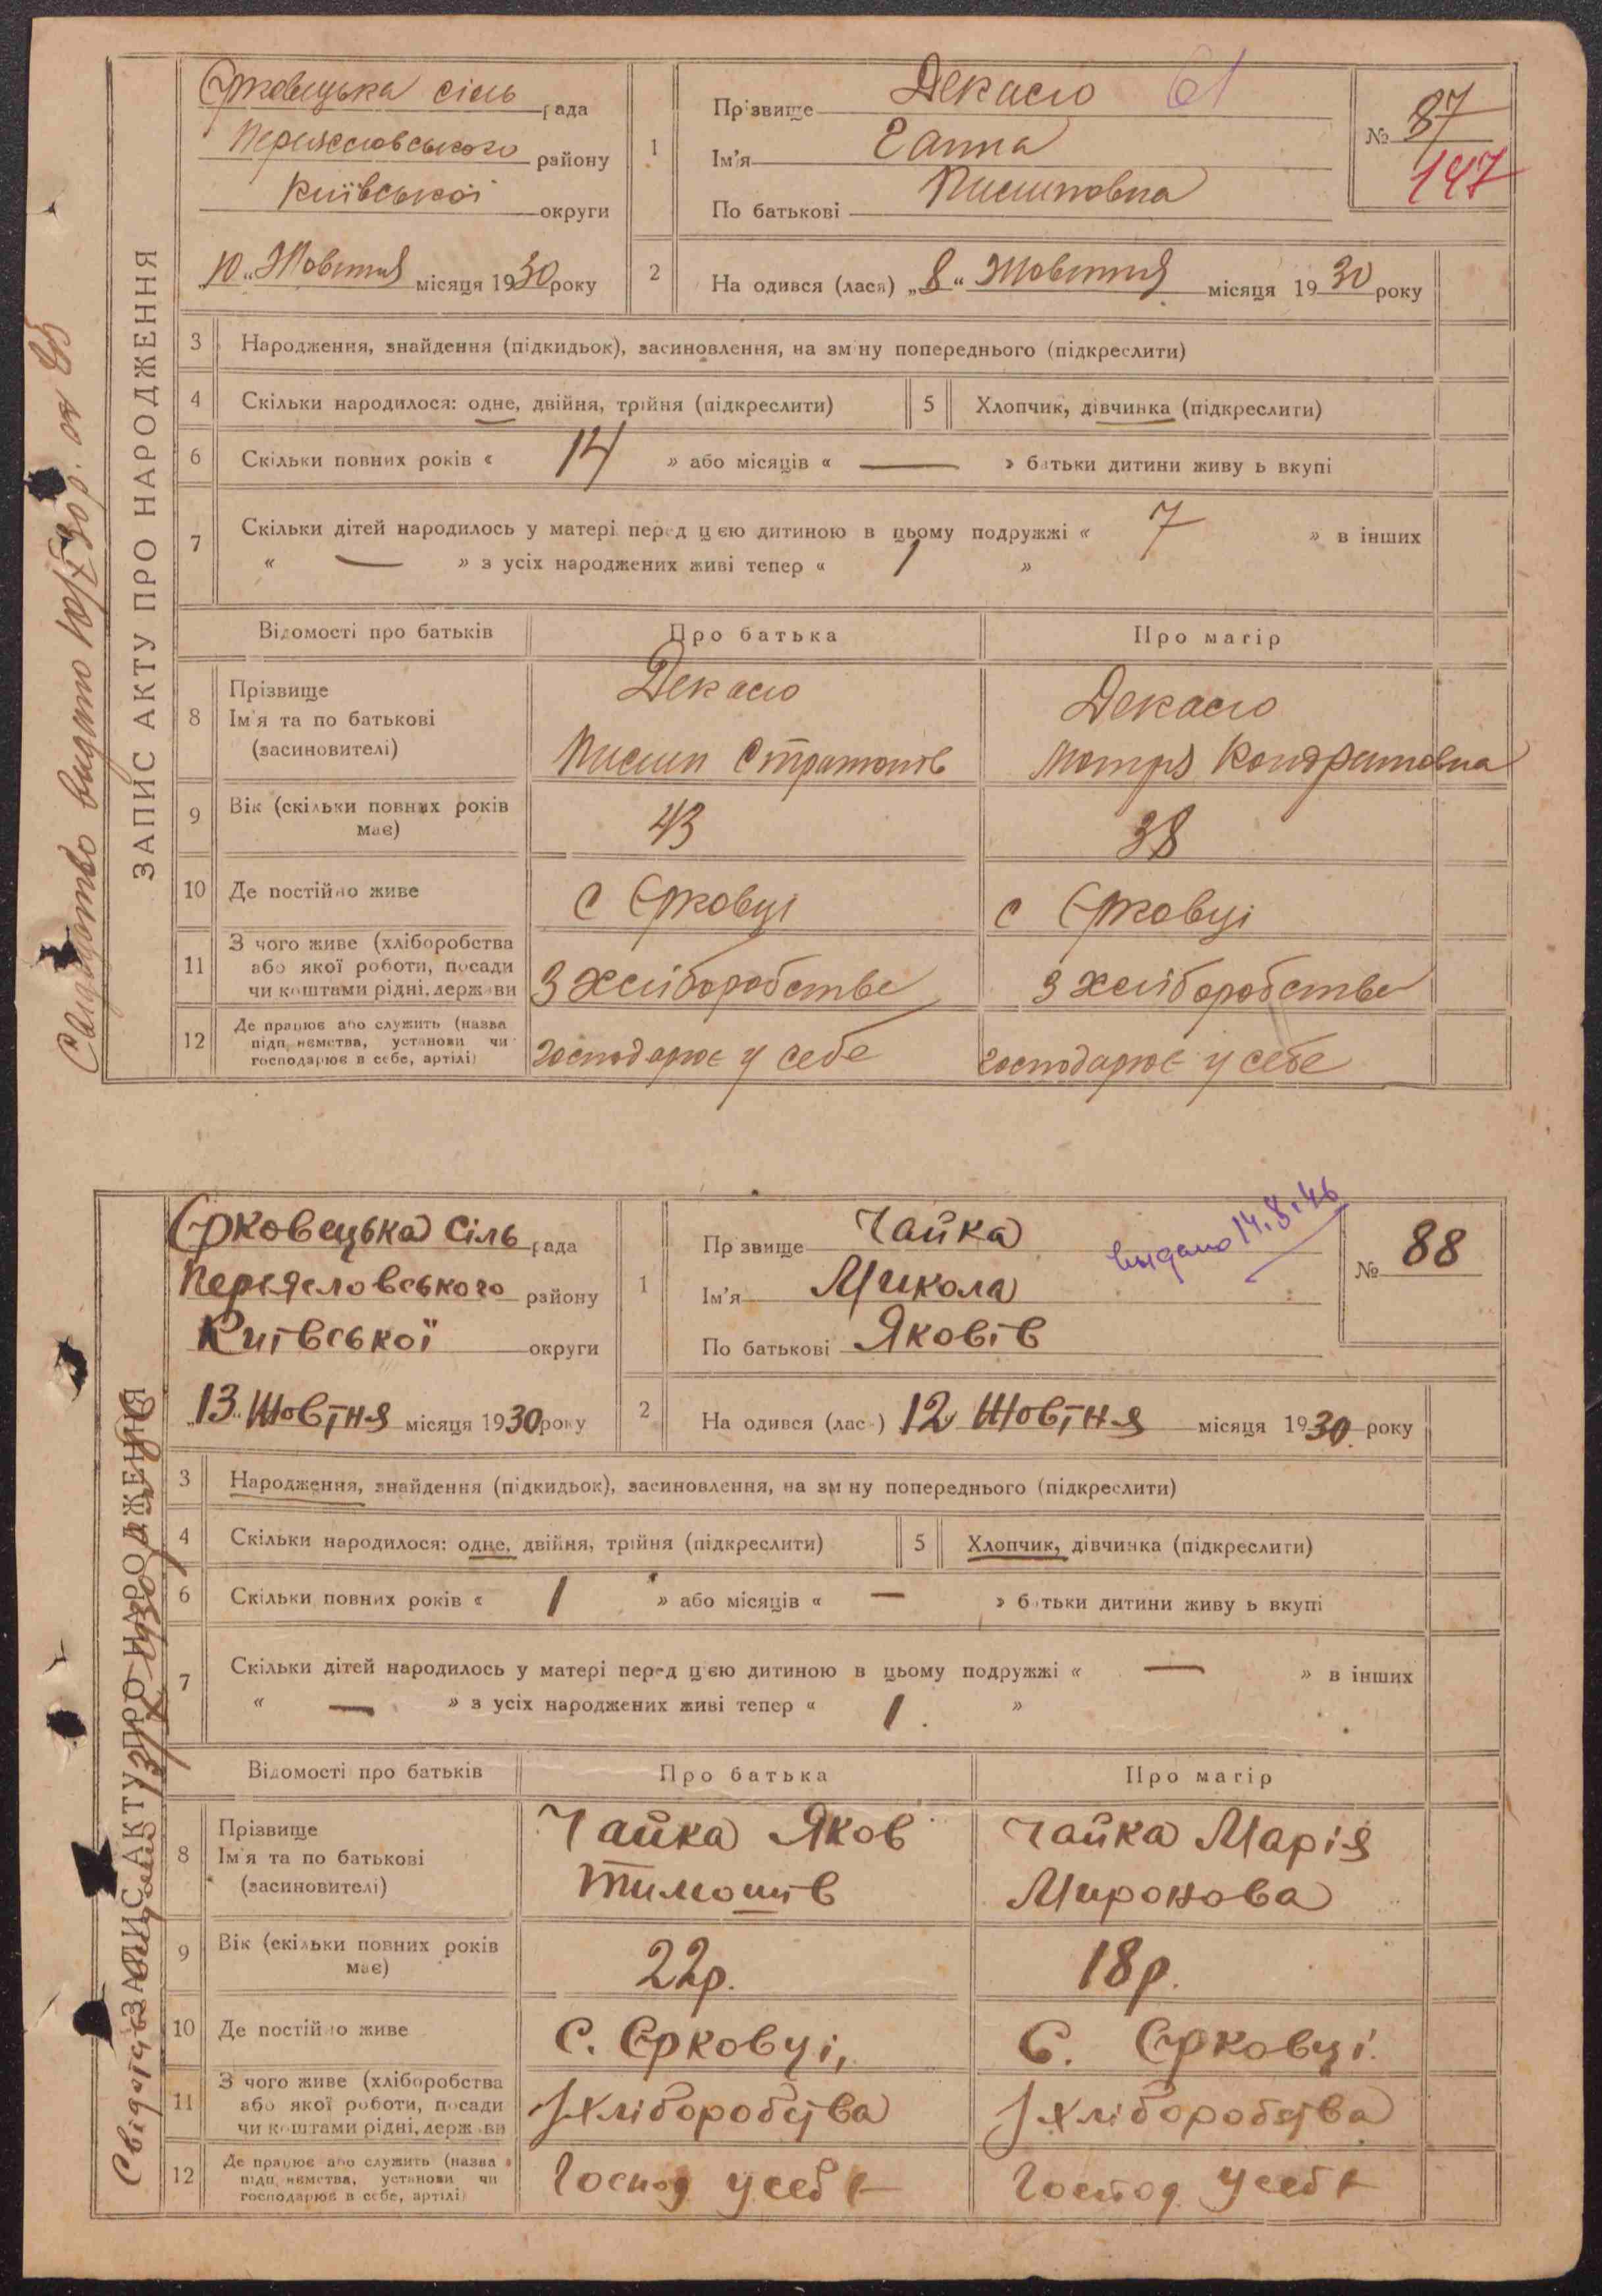 ЗАПИС АКТУ ПРО НАРОДЖЕННЯ
Свидотво видато 10/X 30 р.
Єрковецька сіль рада
Переяславського району
Київської округи
„10“ Жовтня місяця 1930 року
1
Прізвище Декало 61
Ім'я Ганна
По батькові Пилиповна
№ 87
147
2
На одився (лася) „8“ Жовтня місяця 1930 року
3 Народження, знайдення (підкидьок), засиновлення, на зміну попереднього (підкреслити)
4 Скільки народилося: одне, двійня, трійня (підкреслити)
5 Хлопчик, дівчинка (підкреслити)
6 Скільки повних років « 14 » або місяців « — » батьки дитини живуть вкупі
7 Скільки дітей народилось у матері перед цією дитиною в цьому подружжі « 7 » в інших
« — » з усіх народжених живі тепер « 1 »
Відомості про батьків Про батька Про матір
8 Прізвище
Ім'я та по батькові
(засиновителі)
Декало
Пилип Стратонів
Декало
Мотря Кондратовна
9 Вік (скільки повних років має) 43 38
10 Де постійно живе с Єрковці с Єрковці
11 З чого живе (хліборобства
або якої роботи, посади
чи коштами рідні, держави
З хліборобства З хліборобства
12 Де працює або служить (назва
підприємства, установи чи
господарює в себе, артілі)
господарює у себе господарює у себе
ЗАПИС АКТУ ПРО НАРОДЖЕННЯ
Єрковецька сіль рада
Переясловського району
Київської округи
„13“ Жовтня місяця 1930 року
1
Прізвище Чайка
выдано 14.8.46
Ім'я Микола
По батькові Яковів
№ 88
2
На одився (лась) 12 Жовтня місяця 1930 року
3 Народження, знайдення (підкидьок), засиновлення, на зміну попереднього (підкреслити)
4 Скільки народилося: одне, двійня, трійня (підкреслити)
5 Хлопчик, дівчинка (підкреслити)
6 Скільки повних років « 1 » або місяців « — » батьки дитини живуть вкупі
7 Скільки дітей народилось у матері перед цією дитиною в цьому подружжі « — » в інших
« — » з усіх народжених живі тепер « 1. »
Відомості про батьків Про батька Про матір
8 Прізвище
Ім'я та по батькові
(засиновителі)
Чайка Яков
Тимошів
Чайка Марія
Миронова
9 Вік (скільки повних років має) 22р. 18р.
10 Де постійно живе С. Єрковці, С. Єрковці.
11 З чого живе (хліборобства
або якої роботи, посади
чи коштами рідні, держави
З хліборобства З хліборобства
12 Де працює або служить (назва
підприємства, установи чи
господарює в себе, артілі)
Господ усебе Господ. усебе